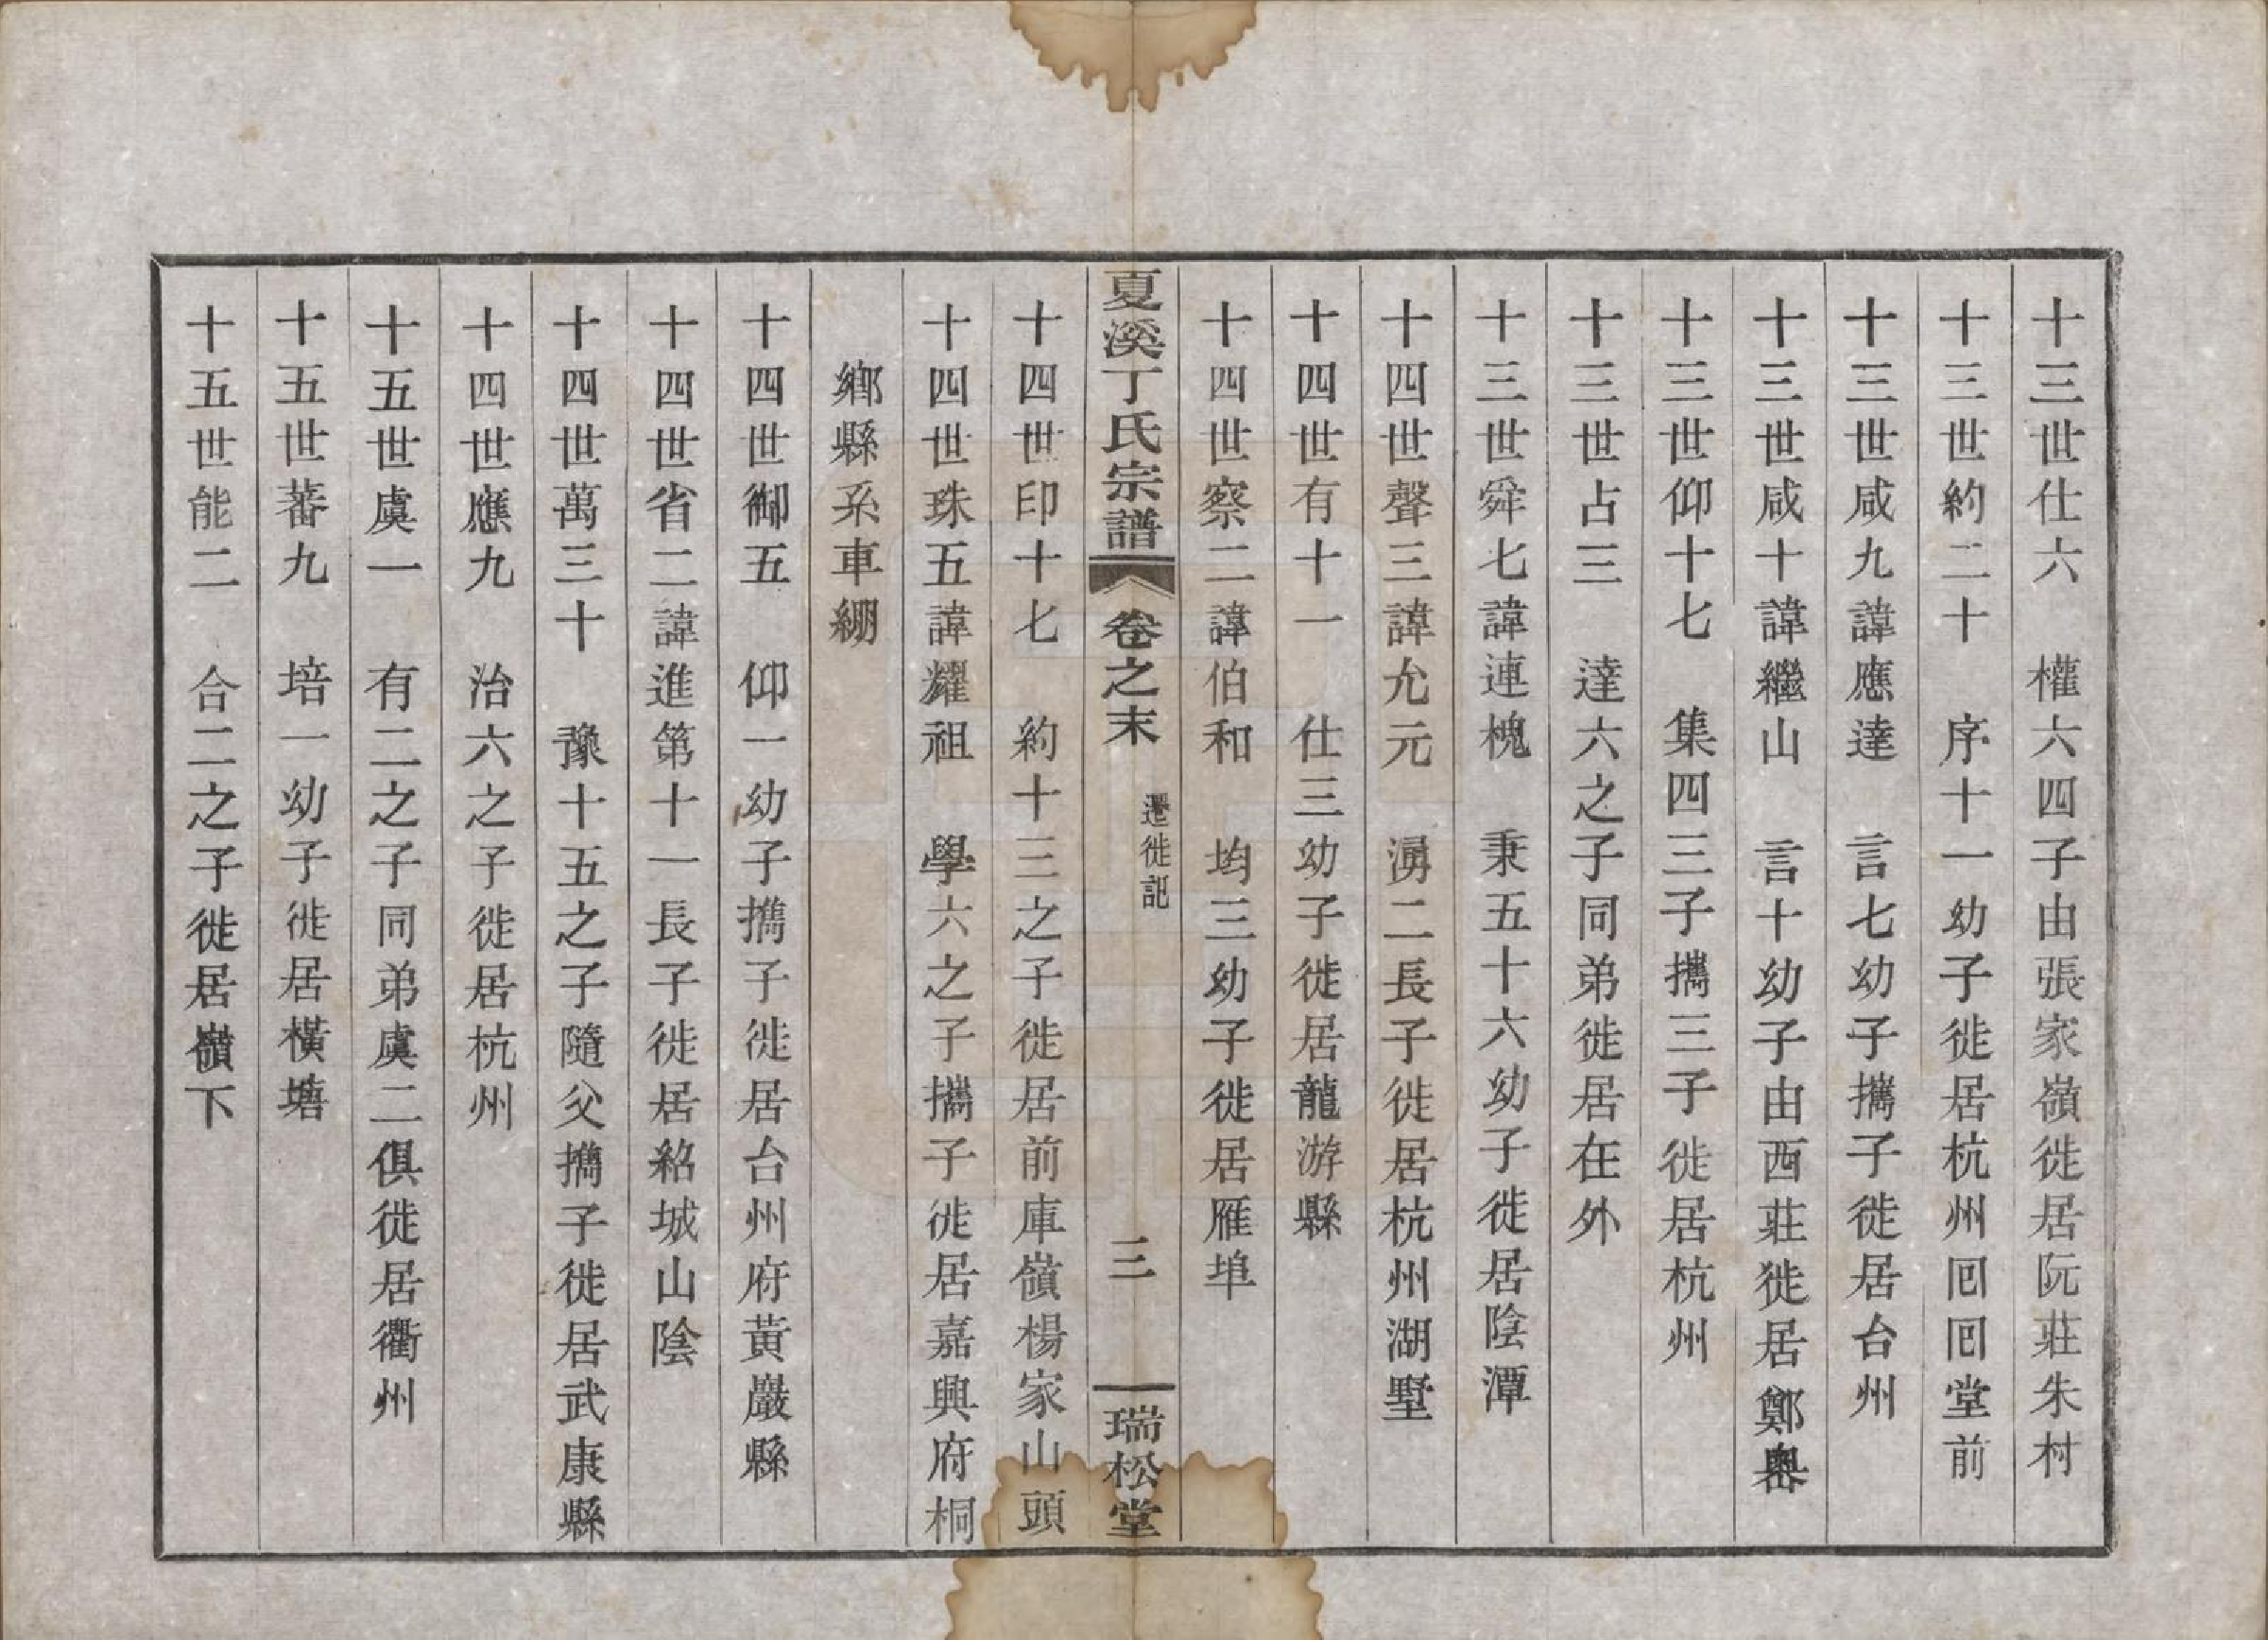 十三世仕六　權六四子由張家嶺徙居阮莊朱村
十三世約二十　序十一幼子徙居杭州囘囘堂前
十三世咸九諱應達　言七幼子攜子徙居台州
十三世咸十諱繼山　言十幼子由西莊徙居鄭嶴
十三世仰十七　集四三子攜三子徙居杭州
十三世占三　達六之子同弟徙居在外
十三世舜七諱連槐　秉五十六幼子徙居陰潭
十四世聲三諱允元　湧二長子徙居杭州湖墅
十四世有十一　仕三幼子徙居龍游縣
十四世察二諱伯和　均三幼子徙居雁埠
夏溪丁氏宗譜　卷之末　遷徙記　三　瑞松堂
十四世印十七　約十三之子徙居前庫嶺楊家山頭
十四世珠五諱耀祖　學六之子攜子徙居嘉興府桐
鄉縣系車綳
十四世御五　仰一幼子攜子徙居台州府黃巖縣
十四世省二諱進第十一長子徙居紹城山陰
十四世萬三十　豫十五之子隨父攜子徙居武康縣
十四世應九　治六之子徙居杭州
十五世虞一　有二之子同弟虞二俱徙居衢州
十五世蕃九　培一幼子徙居橫塘
十五世能二　合二之子徙居嶺下